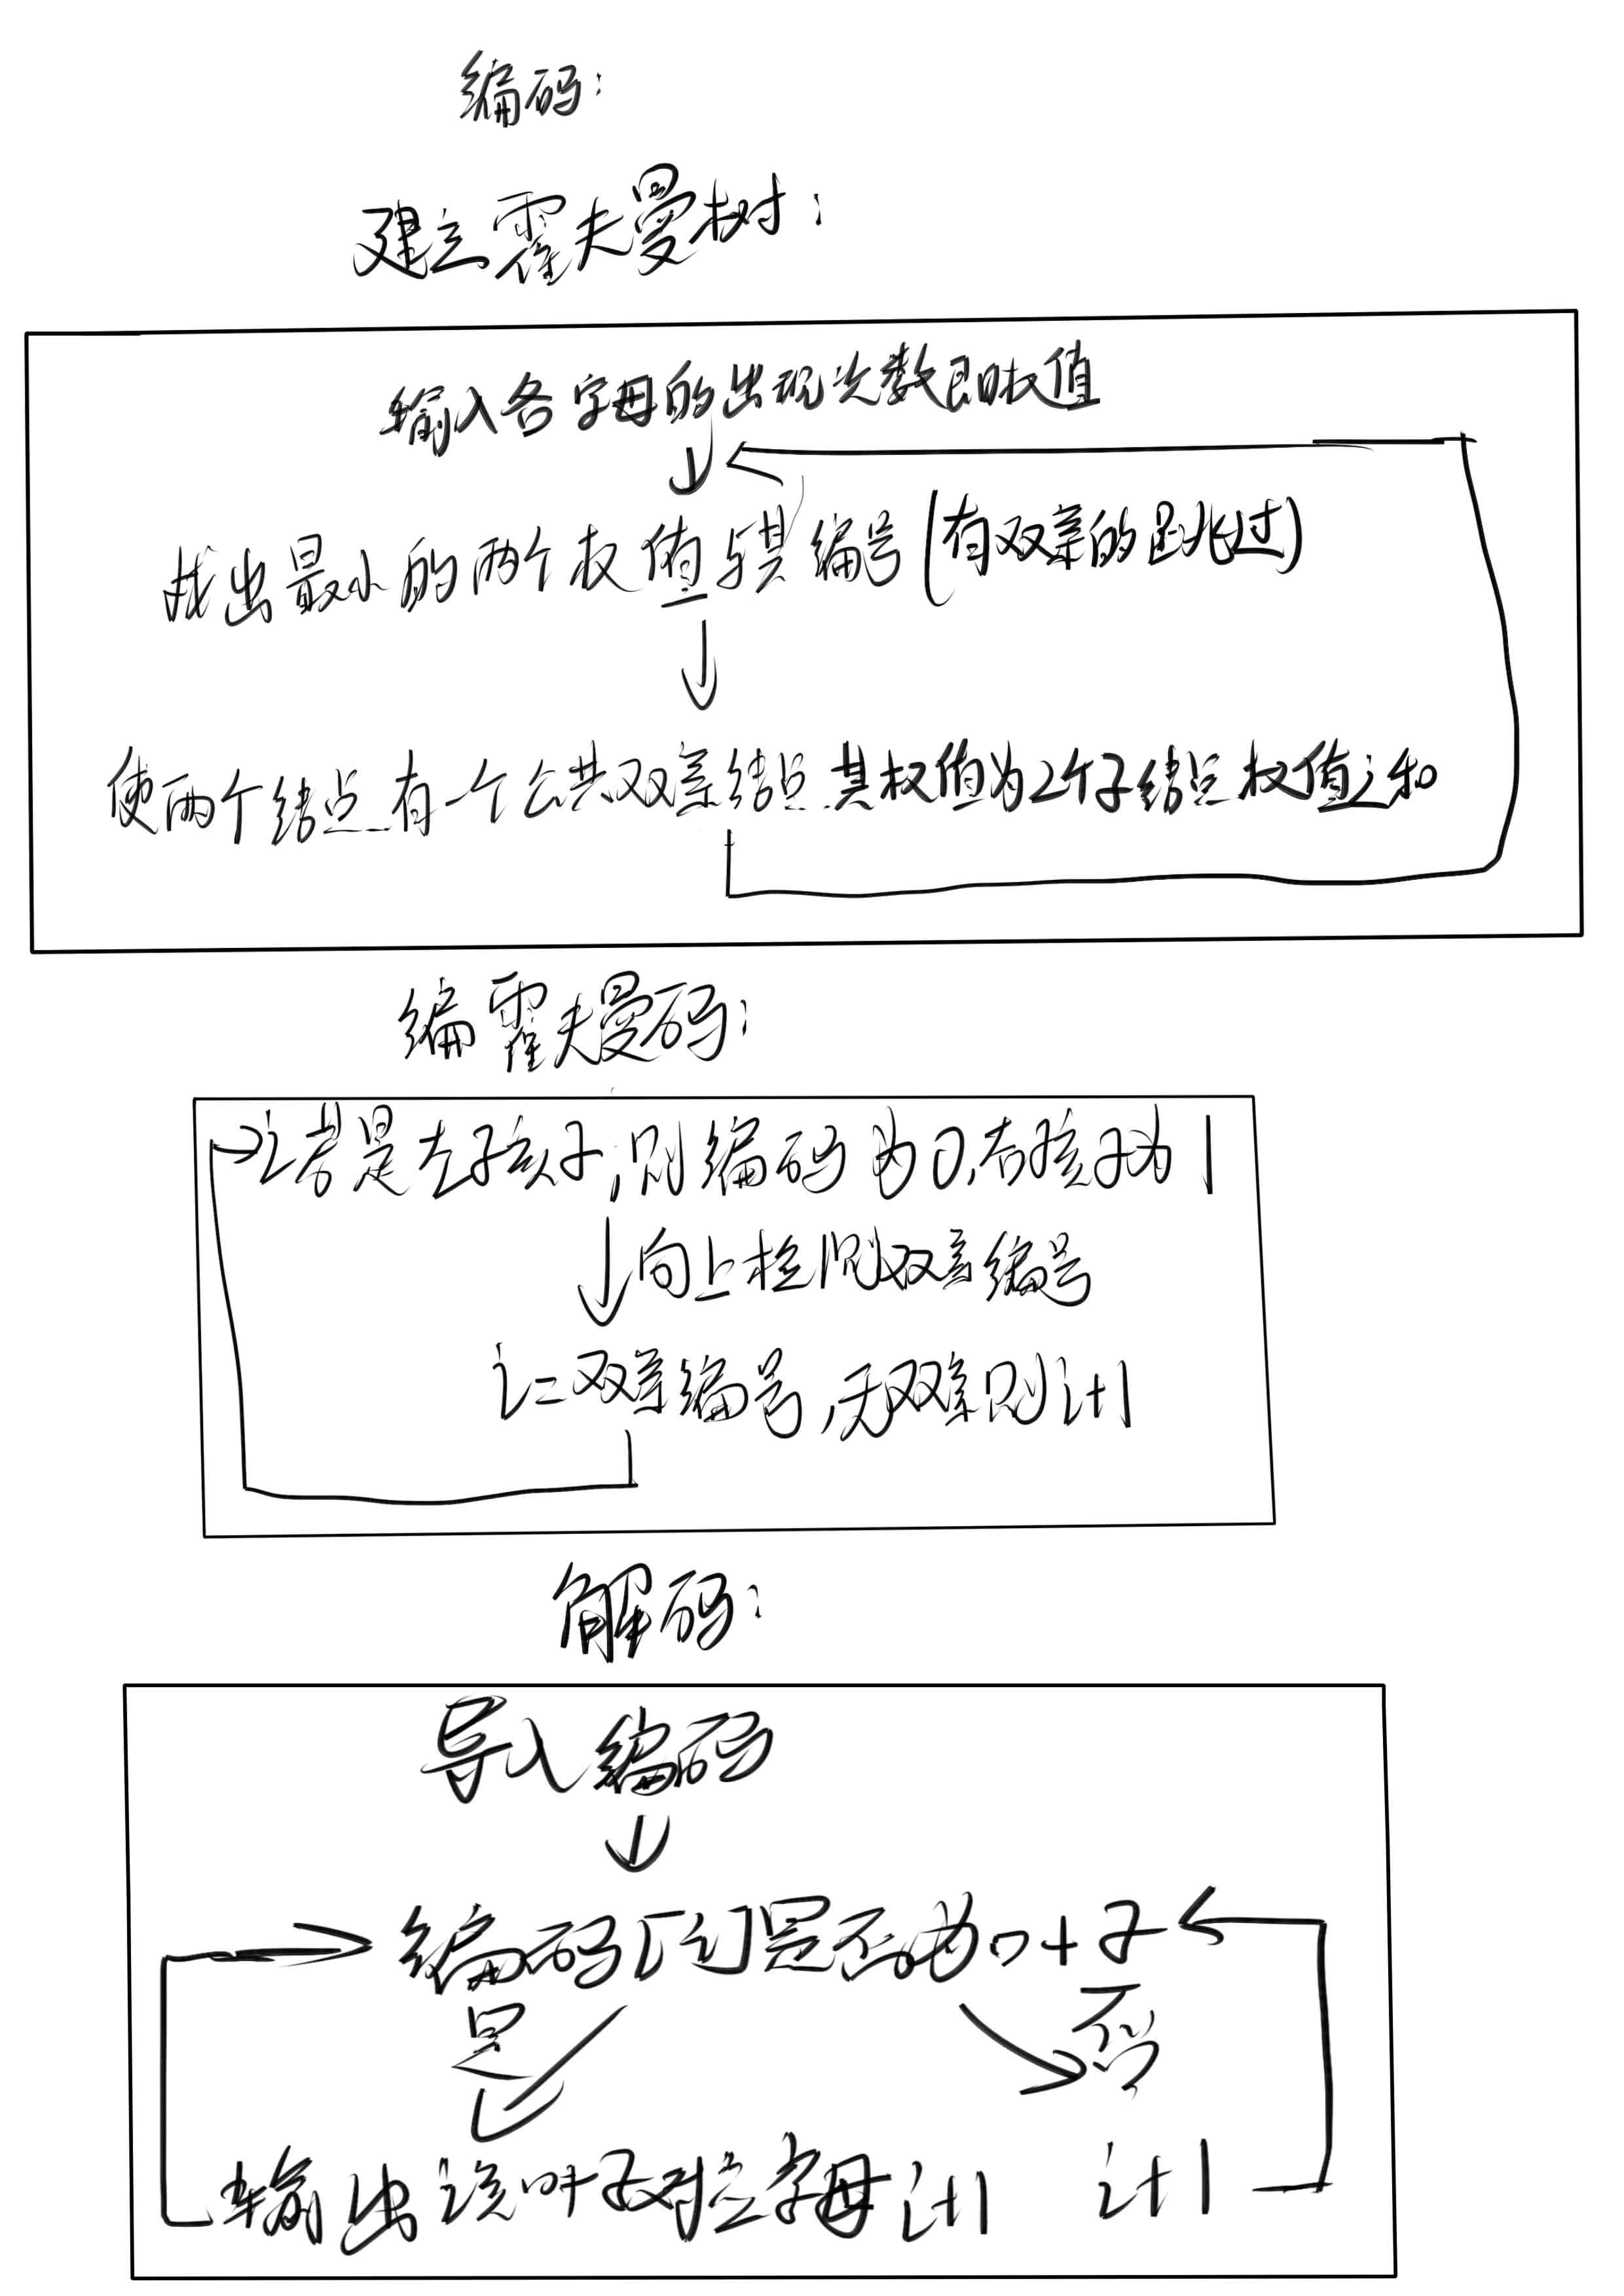 编码:
建立霍夫曼树:
输入各字母的出现次数即权值
找出最小的两个权值与其编号(有双亲的跳过)
使两个结点有一个公共双亲结点其权值为2个子结点权值之和
编霍夫曼码:
i若是左子孩子,则编码为0,右孩子为1
向上检测双亲编号
i=双亲编号,无双亲则i+1
解码:
导入编码
编码[i]是否为叶子
是
否
输出该叶子对应字母i+1
i+1